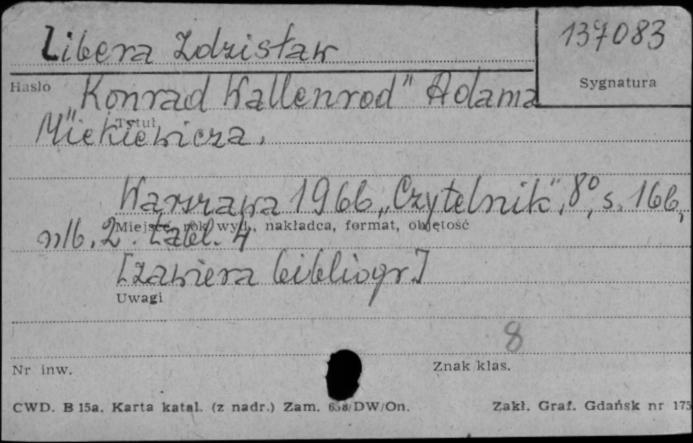 Libera Zdzisław
137083
Hasło
Sygnatura
"Konrad Wallenrod" Adama
Tytuł
Mickiewicza.
Warszawa 1966, „Czytelnik", 8°, s. 166,
Miejsce, rok wyd., nakładca, format, objętość
nlb. 2. tabl. 4
[zawiera bibliogr.]
Uwagi
8
Nr inw.
Znak klas.
CWD. B 15a. Karta katal. (z nadr.) Zam. 658/DW/On.
Zakł. Graf. Gdańsk nr 175